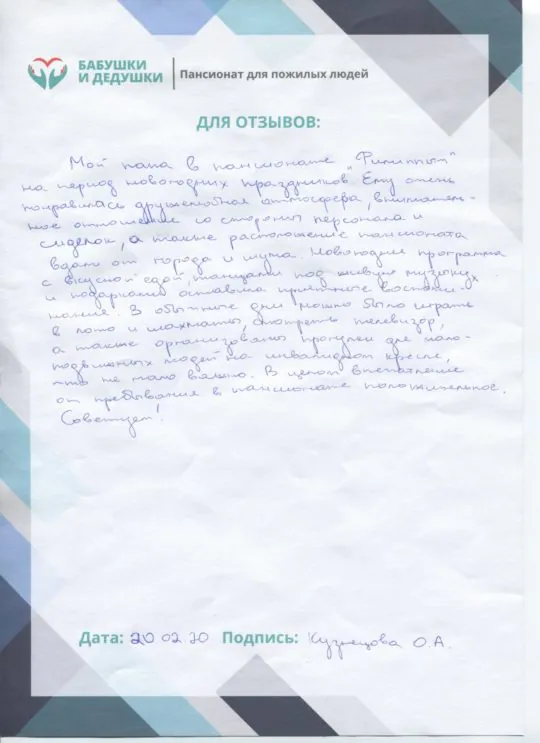 БАБУШКИ
И ДЕДУШКИ
Пансионат для пожилых людей
ДЛЯ ОТЗЫВОВ:
Мой папа в пансионате „Филиппыч"
на период новогодних праздников. Ему очень
понравилась дружелюбная атмосфера, вниматель-
ное отношение со стороны персонала и
сиделок, а также расположение пансионата
вдали от города и шума. Новогодняя программа
с вкусной едой, танцами под живую музыку
и подарками оставила приятные воспоми-
нания. В обычные дни можно было играть
в лото и шахматы, смотреть телевизор,
а также организованы прогулки для мало-
подвижных людей на инвалидном кресле,
что не мало важно. В целом впечатление
от пребывания в пансионате положительное.
Советуем!
Дата: 20 02 20 Подпись: Кузнецова О.А.